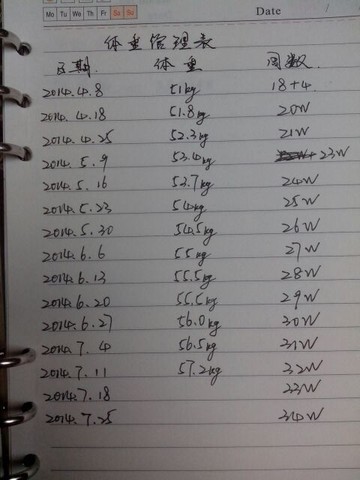 Mo Tu We Th Fr Sa Su Date
体重管理表
日期 体重 周数
2014.4.8 51kg 18+4
2014.4.18 51.8kg 20W
2014.4.25 52.3kg 21W
2014.5.9 53.4kg 23W
2014.5.16 53.7kg 24W
2014.5.23 54kg 25W
2014.5.30 54.5kg 26W
2014.6.6 55kg 27W
2014.6.13 55.5kg 28W
2014.6.20 55.5kg 29W
2014.6.27 56.0kg 30W
2014.7.4 56.5kg 31W
2014.7.11 57.2kg 32W
2014.7.18 33W
2014.7.25 34W